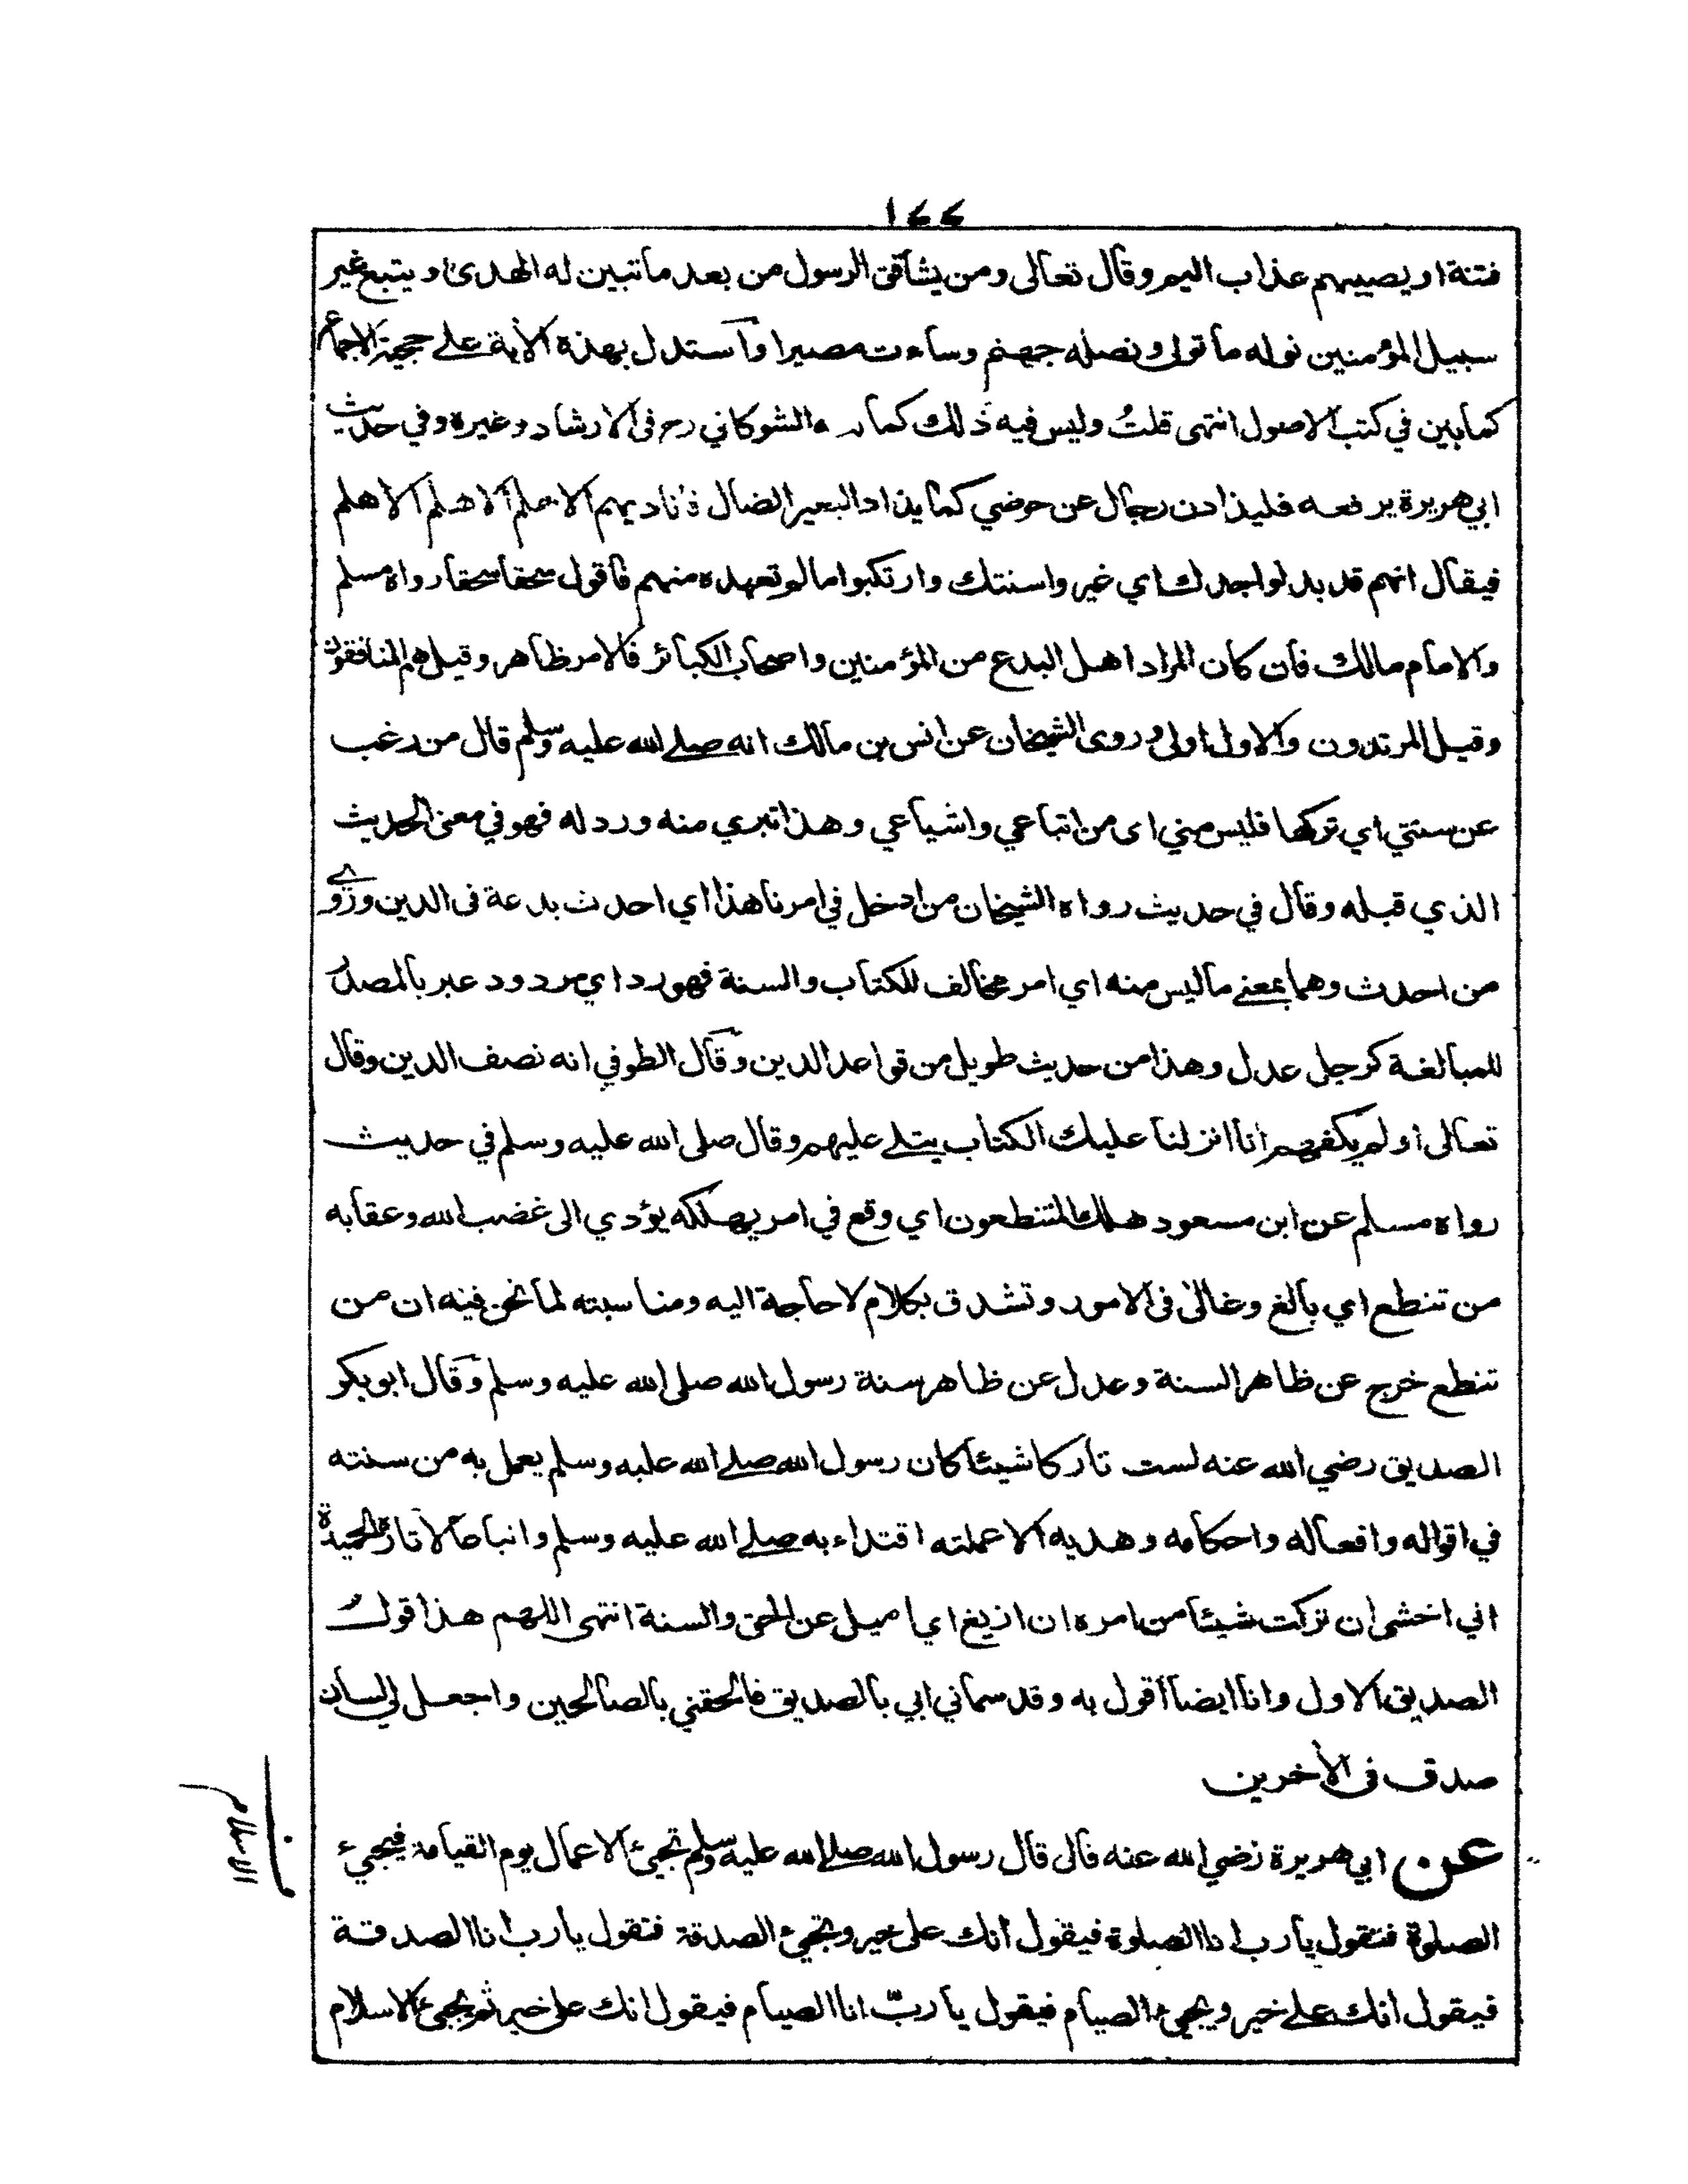 ١٤٤
فتنة او يصيبهم عذاب اليم وقال تعالى ومن يشاقق الرسول من بعد ما تبين له الهدى ويتبع غير
سبيل المؤمنين نوله ما تولى ونصله جهنم وساءت مصيرا واستدل بهذة الاية على حجية الاجماع
كما بين في كتب الاصول انتهى قلت وليس فيه ذلك كما الشوكاني رح فى الارشاد وغيره وفي حديث
ابي هريرة يرفعه فليذادن رجال عن حوضي كما يذاد البعير الضال فاناديهم الا هلم الا هلم الا هلم
فيقال انهم قد بدلوا بعدك اي غيروا سنتك وارتكبوا ما لم تعهده منهم فاقول سحقا سحقا رواه مسلم
والامام مالك فان كان المراد اهل البدع من المؤمنين واصحاب الكبائر فالامر ظاهر وقيل هم المنافقون
وقيل المرتدون والاول اولى وروى الشيخان عن انس بن مالك انه صلى الله عليه وسلم قال من رغب
عن سنتي اي تركها فليس مني اى من اتباعي واشياعي وهذا تبري منه ورد له فهو في معنى الحديث
الذي قبله وقال في حديث رواه الشيخان من ادخل في امرنا هذا اي احدث بدعة فى الدين وروى
من احدث وهما بمعنى ما ليس منه اي امر مخالف للكتاب والسنة فهو رد اي مردود عبر بالمصدر
للمبالغة كرجل عدل وهذا من حديث طويل من قواعد الدين وقال الطوفي انه نصف الدين وقال
تعالى او لم يكفهم انا انزلنا عليك الكتاب يتلى عليهم وقال صلى الله عليه وسلم في حديث
رواه مسلم عن ابن مسعود هلك المتنطعون اي وقع في امر يهلكه يؤدي الى غضب الله وعقابه
من تنطع اي بالغ وغالى فى الامور وتشدق بكلام لا حاجة اليه ومناسبته لما نحن فيه ان من
تنطع خرج عن ظاهر السنة وعدل عن ظاهر سنة رسول الله صلى الله عليه وسلم وقال ابو بكر
الصديق رضي الله عنه لست تاركا شيئا كان رسول الله صلى الله عليه وسلم يعمل به من سنته
في اقواله وافعاله واحكامه وهديه الا عملته اقتداء به صلى الله عليه وسلم واتباعا لاثاره الحميدة
اني اخشى ان تركت شيئا من امره ان ازيغ اي اميل عن الحق والسنة انتهى اللهم هذا قول
الصديق الاول وانا ايضا اقول به وقد سماني ابي بالصديق فالحقني بالصالحين واجعل لي لسان
صدق فى الأخرين
عن ابي هريرة رضي الله عنه قال قال رسول الله صلى الله عليه وسلم تجئ الاعمال يوم القيامة فيجيء
الصلوة فتقول يا رب انا الصلوة فيقول انك على خير وتجئ الصدقة فتقول يا رب انا الصدقة
فيقول انك على خير ويجئ الصيام فيقول يا ربّ انا الصيام فيقول انك على خير ثم يجئ الاسلام
الاسلام